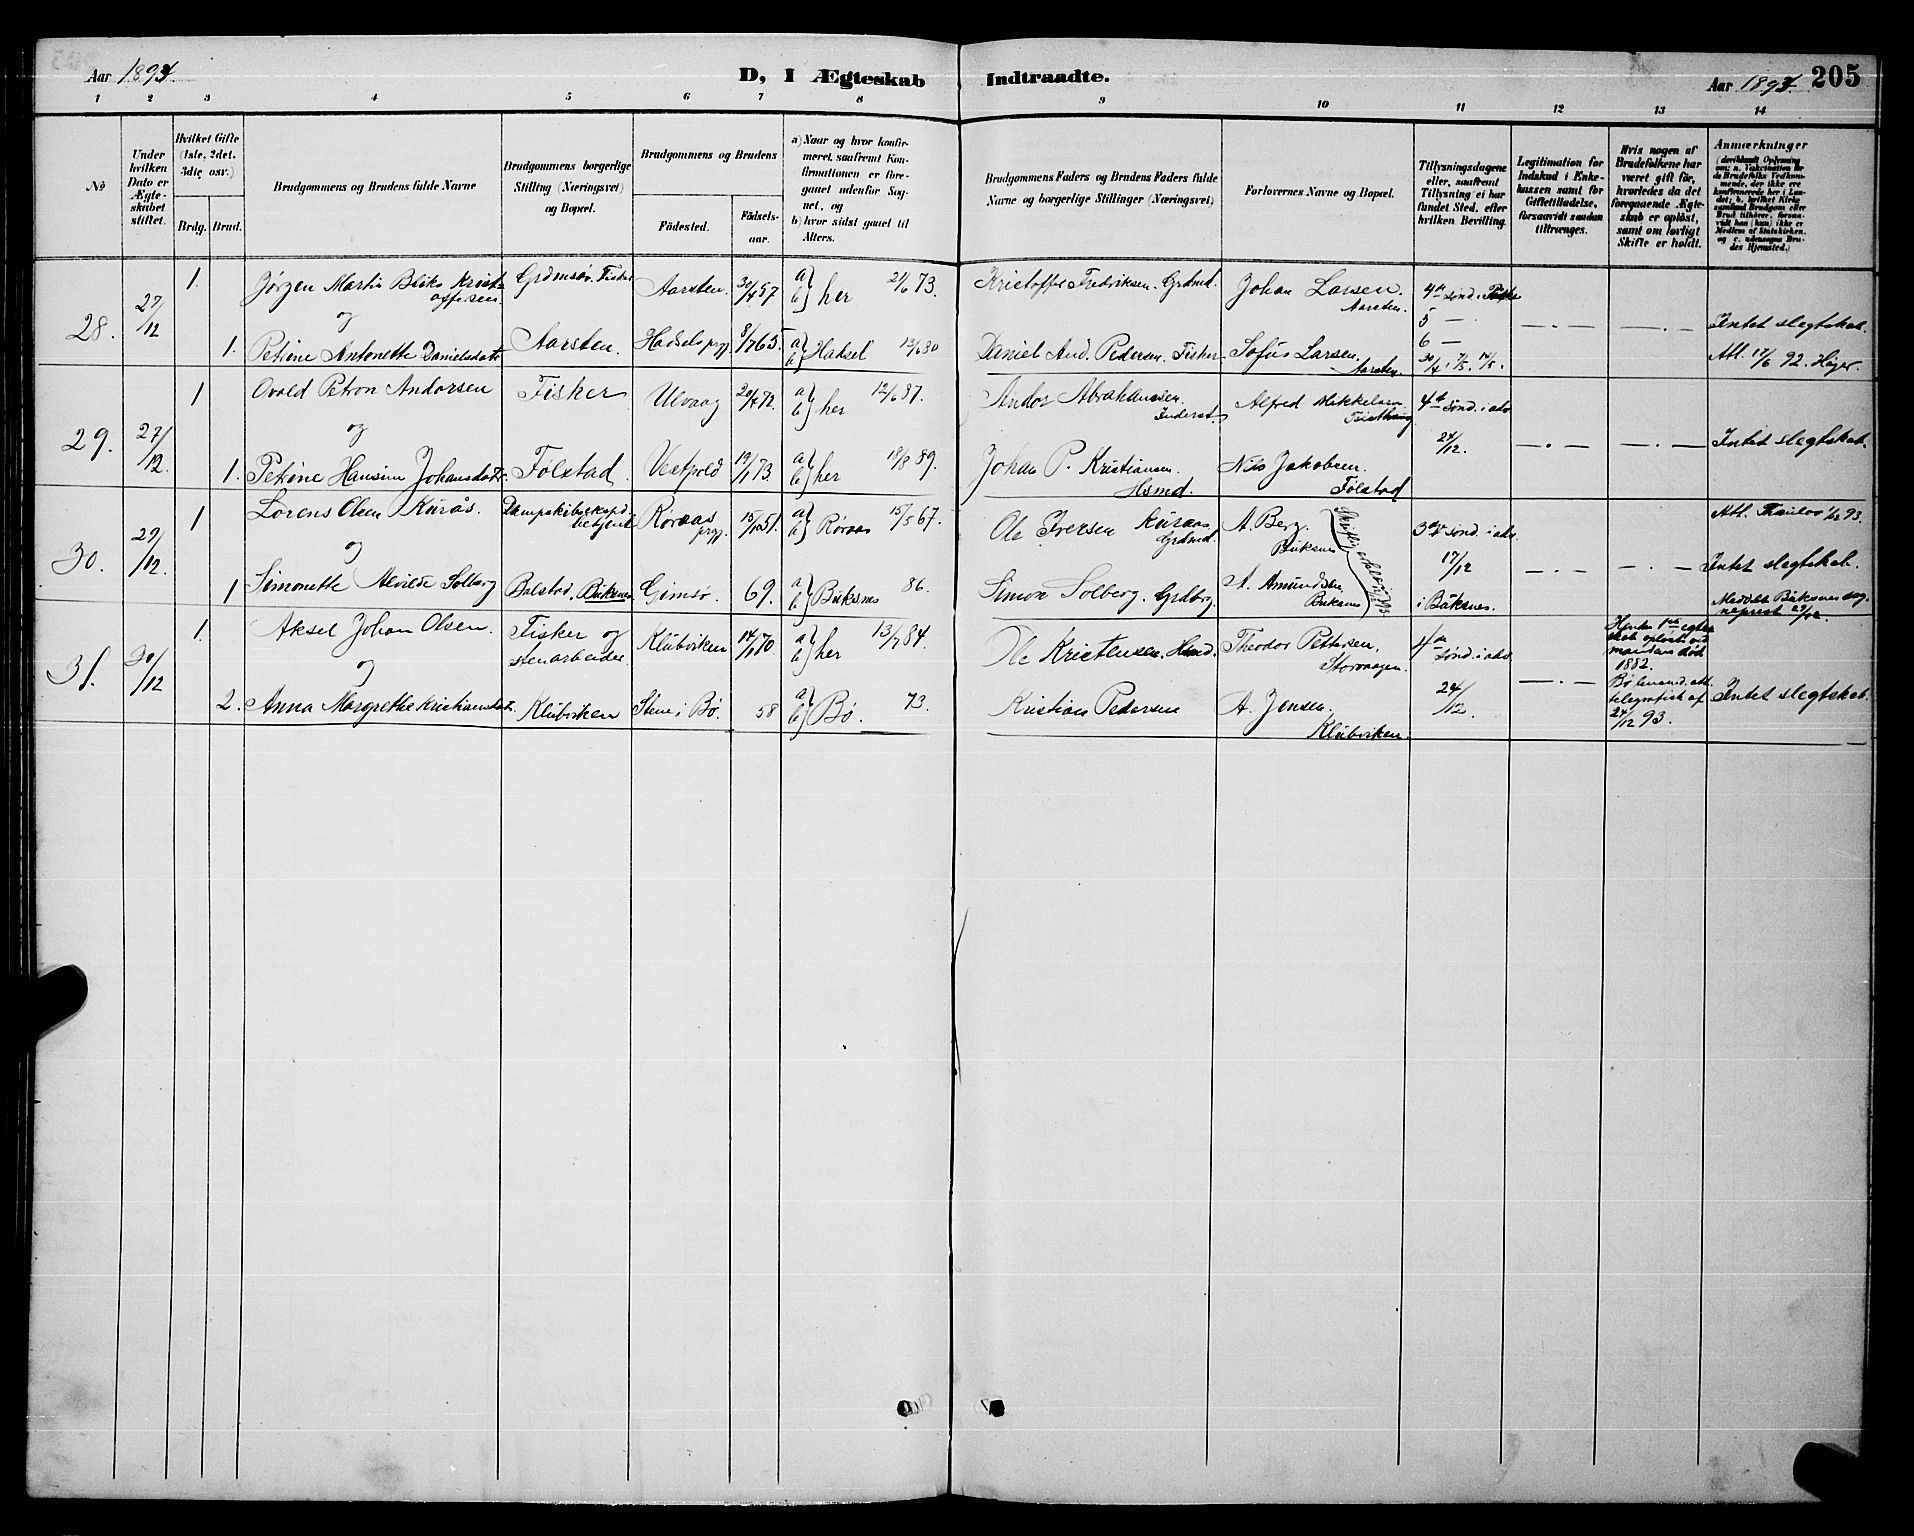 Aar 1893.
D, I Ægteskab Indtraadte.
Aar 1893. 205
1 2 3 4 5 6 7 8 9 10 11 12 13 14
No
Under hvilken Dato er Ægteskabet stiftet.
Hvilket Gifte (1ste, 2det, 3die osv.)
Brdg. Brud.
Brudgommens og Brudens fulde Navne
Brudgommens borgerlige Stilling (Næringsvei) og Bopæl.
Brudgommens og Brudens
Födested. Födsels-aar.
a) Naar og hvor konfirmeret, saafremt Konfirmationen er foregaaet udenfor Sognet, og
b) hvor sidst gaaet til Alters.
Brudgommens Faders og Brudens Faders fulde Navne og borgerlige Stillinger (Næringsvei)
Forlovernes Navne og Bopæl.
Tillysningsdagene eller, saafremt Tillysning ei har fundet Sted, efter hvilken Bevilling.
Legitimation for Indskud i Enkekassen samt for Giftetilladelse, forsaavidt saadan tiltrænges.
Hvis nogen af Brudefolkene har været gift för, hvorledes da det foregaaende Ægteskab er oplöst, samt om lovligt Skifte er holdt.
Anmærkninger
28. 27/12 1. Jørgen Martin Kristoffersen Grdmsøn. Fisker Aarsten. 30/4 57 a b her 21/6 73. Kristoffer Fredriksen. Grdmd. Johan Larsen. Aarsten. 4de sønd.
og
5 —
1. Petrine Antonette Danielsdatr Aarsten. Hadsels prgj. 8/7 65 a b Hadsel 13/6 80 Daniel And. Pedersen Fisker Sofus Larsen. Aarsten. 6 — 30/4. 7/5. 14/5. —.— —.— Intet slegtskab. Att. 17/6 92. Høyer.
29. 27/12. 1 Ovald Petron Andorsen Fisker Ulvaag 20/4 72. a b her 12/6 87. Andor Abrahamsen Alfred Mikkelsen 4de sønd. i adv
og
24/12. —.— —.— Intet slegtskab.
1. Petrine Hansine Johansdatr. Følstad Vestpold 19/1 73. a b her 18/8 89. Johan P. Kristiansen. Hsmd. Nils Jakobsen. Følstad
30. 29/12. 1 Lorens Olsen Kurås. Dampskibsekspd. betjent Røraas prgj. 15/10 51. a b Røraas 15/5 67. Ole Iversen Kuraas Grdmd. A. Berg. Buksnes 3die sønd. i adv Att. 1/12 93.
og
17/12 —.— —.— Intet slegtskab.
1 Simonette Alvilde Solberg Balstad, Buksnes Gimsø. 69. a b Buksnes 86. Simon Solberg. Grdbrg. A. Amundsen Buksnes i Buksnes. Meddelt Buksnes sogneprest 29/12.
31. 30/12 1. Aksel Johan Olsen. Fisker og stenarbeider Klubviken 14/1 70 a b her 13/7 84. Ole Kristensen. Hsmd. Theodor Pettersen, Storvaagen. 4de sønd. i adv Hendes 1ste egteskab opløst ved mandens død 1882.
og
2. Anna Margrethe Kristiansdat. Klubviken Stene i Bø. 58 a b Bø. 73. Kristian Pedersen A. Jensen. Klubviken. 24/12. —.— Bø lensmd. att. telegrafisk af 24/12 93. Intet slegtskab.